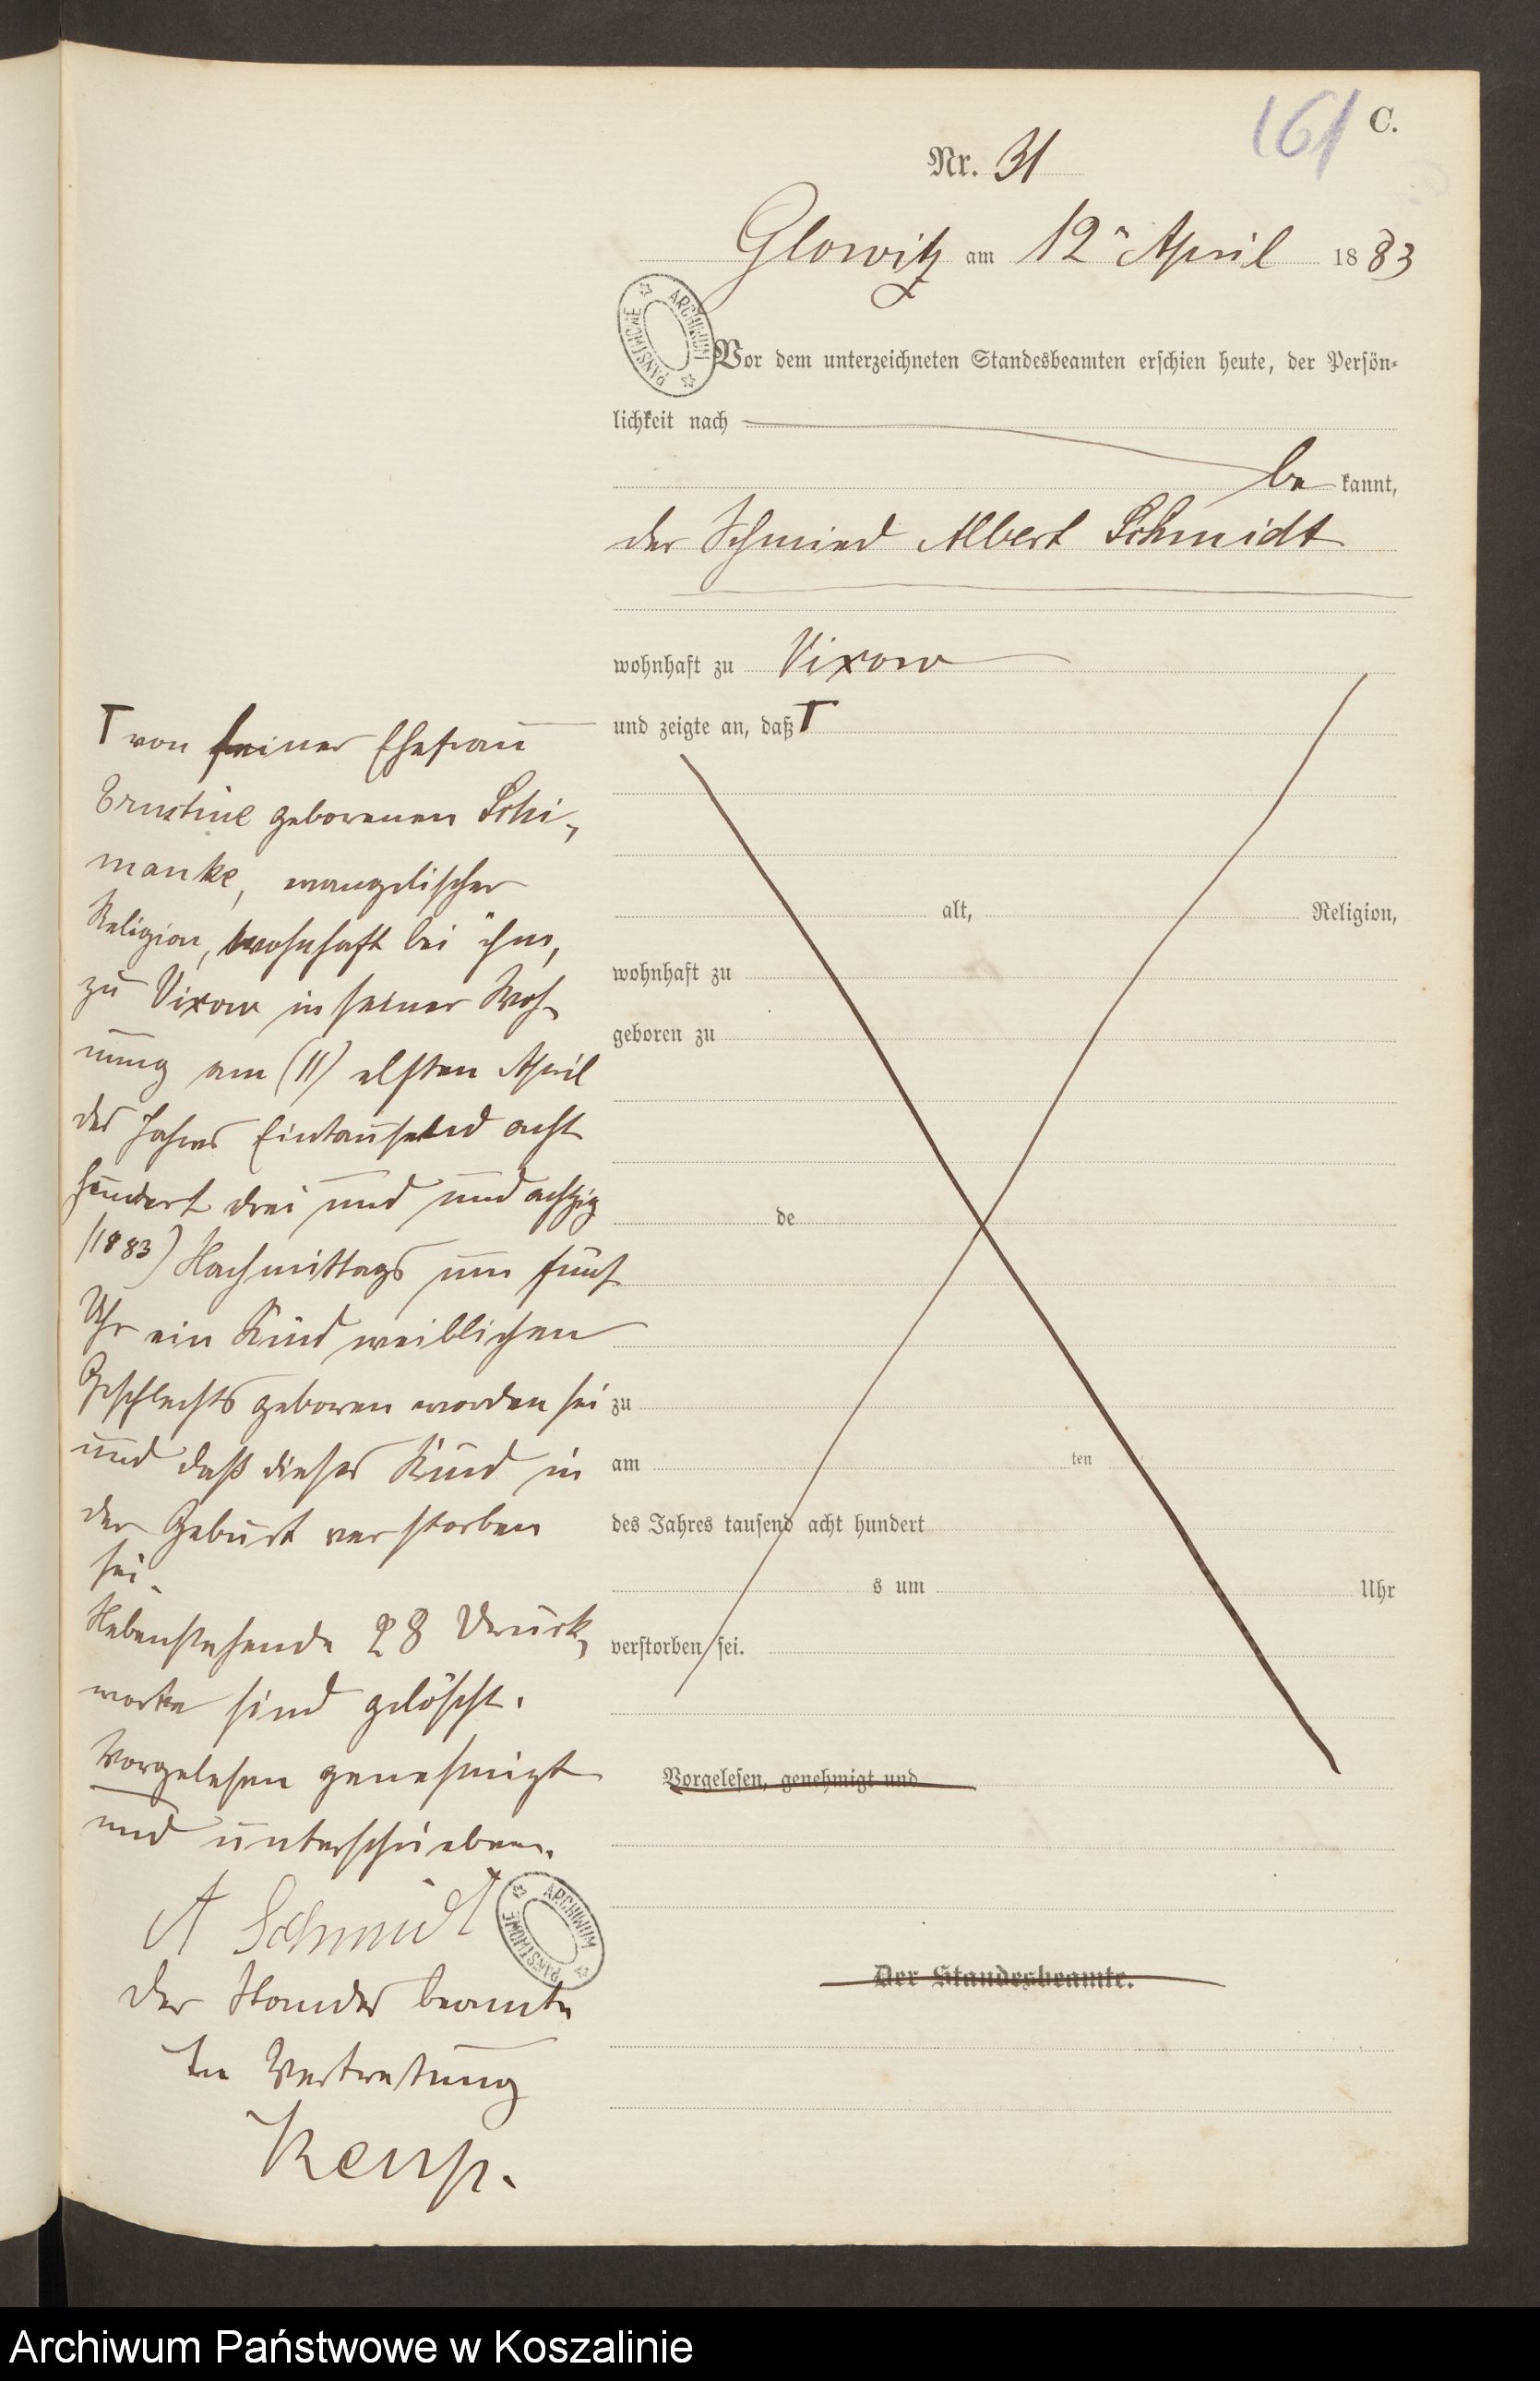 161 C.
Nr. 31
Glowitz am 12ten April 1883
ARCHIWUM PAŃSTWOWE
Vor dem unterzeichneten Standesbeamten erschien heute, der Persön-
lichkeit nach
be kannt,
der Schmied Albert Schmidt
wohnhaft zu Vixow
und zeigte an, daß T
T von seiner Ehefrau
Ernstine geborenen Schi-
manke, evangelischer
Religion, wohnhaft bei ihm,
zu Vixow in seiner Woh-
nung am (11) elften April
des Jahres Eintausend acht
hundert drei und und achtzig
(1883) Nachmittags um fünf
Uhr ein Kind weiblichen
Geschlechts geboren worden sei
und daß dieses Kind in
der Geburt verstorben
sei.
Nebenstehende 28 Druck-
worte sind gelöscht.
Vorgelesen genehmigt
und unterschrieben.
A Schmidt
ARCHIWUM PAŃSTWOWE
Der Standesbeamte
In Vertretung
alt, Religion,
wohnhaft zu
geboren zu
de
zu
am ten
des Jahres tausend acht hundert
s um Uhr
verstorben sei.
Vorgelesen, genehmigt und
Der Standesbeamte.
Archiwum Państwowe w Koszalinie